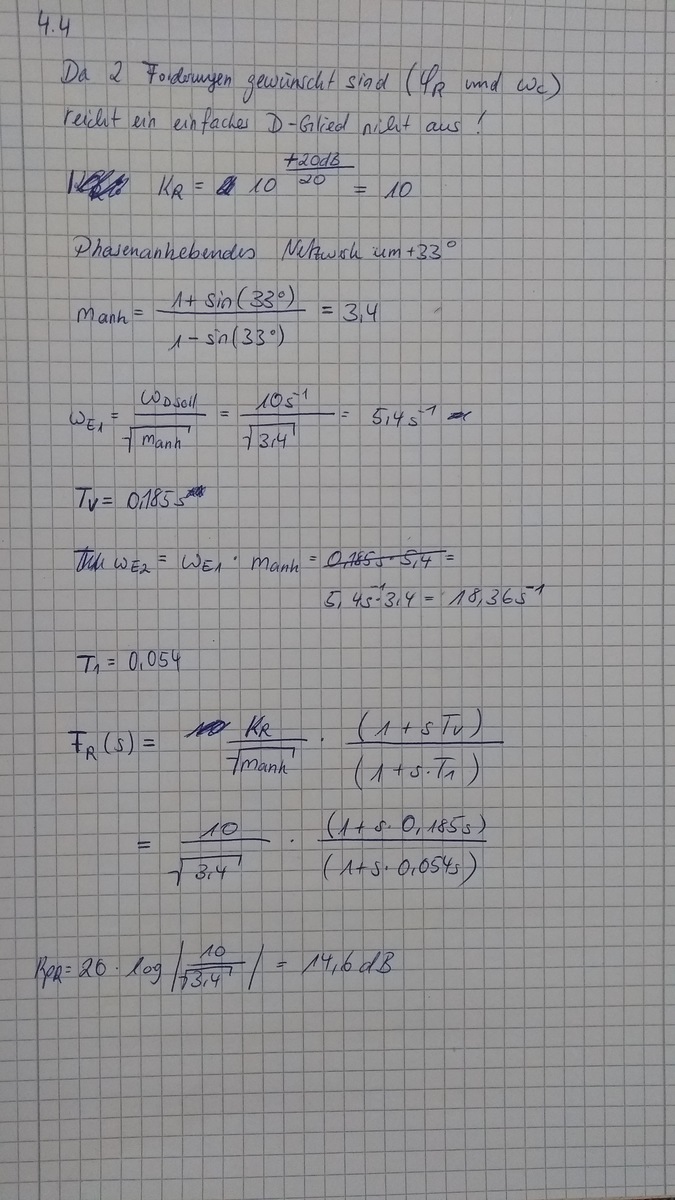 4.4
Da 2 Forderungen gewünscht sind (φR und ωc)
reicht ein einfaches D-Glied nicht aus!
KR = 10^(+20dB/20) = 10
Phasenanhebendes Netzwerk um +33°
manh = (1 + sin(33°)) / (1 - sin(33°)) = 3,4
ωE1 = ωDsoll / √manh = 10s⁻¹ / √3,4 = 5,4s⁻¹
Tv = 0,185s
ωE2 = ωE1 · manh = 0,185s · 5,4 =
5,4s⁻¹·3,4 = 18,36s⁻¹
T1 = 0,054
FR(s) = KR / √manh · (1 + sTv) / (1 + s·T1)
= 10 / √3,4 · (1+s·0,185s) / (1+s·0,054s)
= 20 · log|10 / √3,4| = 14,6dB